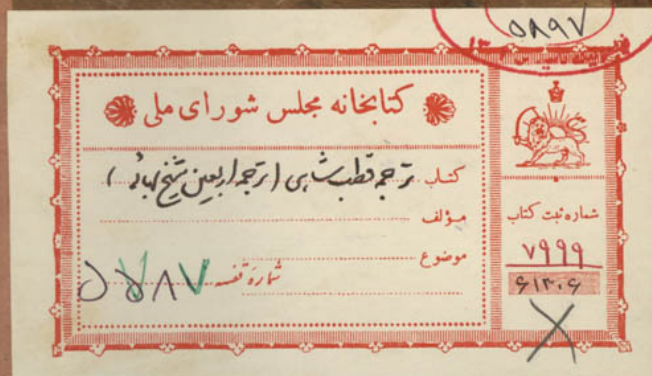 ۵۸۹۷
کتابخانه مجلس شورای ملی
کتاب ترجمه قطب‌شاهی (ترجمه اربعین شیخ بهائی)
مؤلف
موضوع
شماره قفسه
شماره ثبت کتاب
۷۹۹۹
۶۱۳۰۶